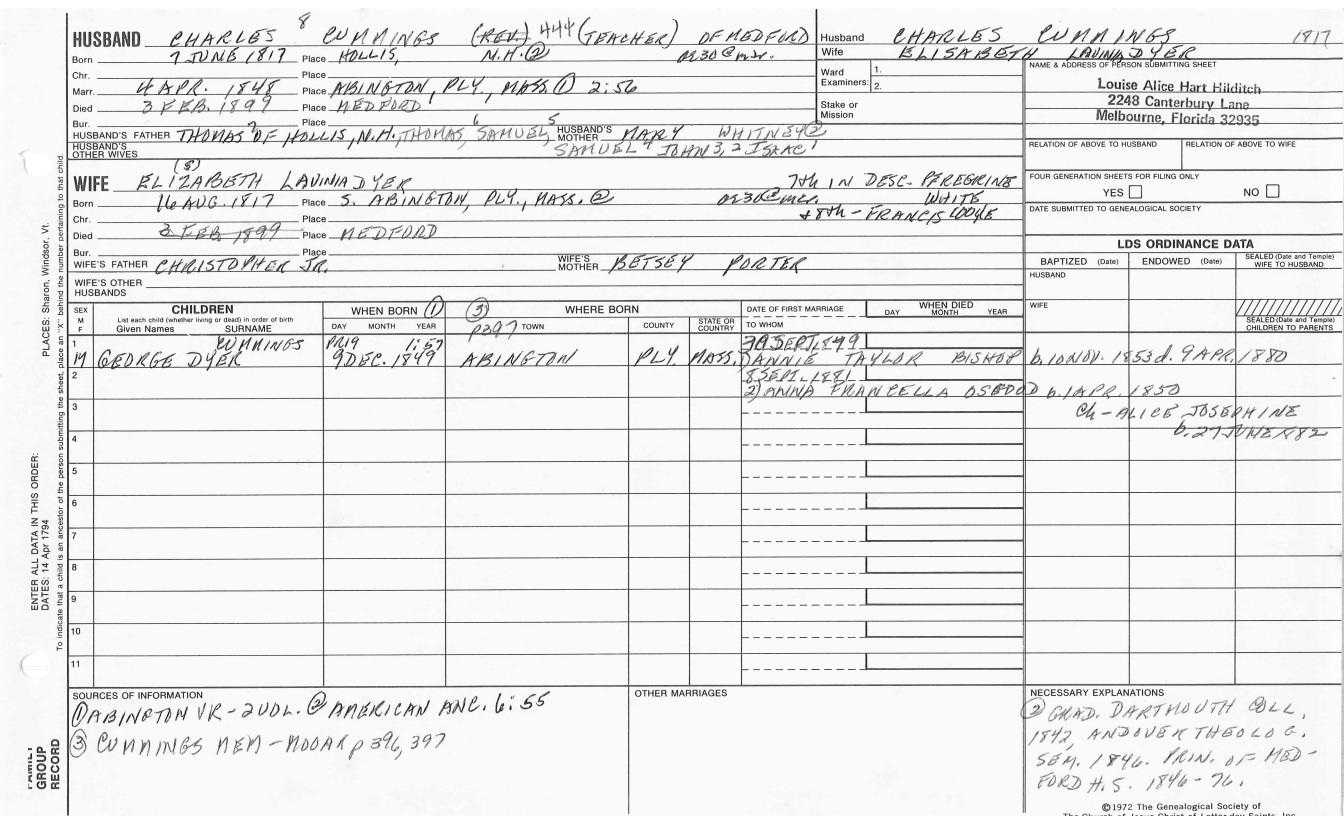 8
HUSBAND CHARLES CUMMINGS (REV) 444 (TEACHER) OF MEDFORD
Born 7 JUNE 1817 Place HOLLIS, N.H. ②
Chr. Place
Marr. 4 APR. 1848 Place ABINGTON, PLY., MASS. ① 2:56
Died 3 FEB. 1899 Place MEDFORD
Bur. Place
HUSBAND'S FATHER THOMAS 7 OF HOLLIS, N.H., THOMAS, 6 SAMUEL, 5 HUSBAND'S MOTHER MARY WHITNEY ②
HUSBAND'S OTHER WIVES SAMUEL 4 JOHN 3, 2 ISAAC 1
(S)
WIFE ELIZABETH LAVINIA DYER 7th IN DESC. PEREGRINE
Born 16 AUG. 1817 Place S. ABINGTON, PLY., MASS. ② WHITE
Chr. Place + 8th - FRANCIS COOKE
Died 3 FEB 1899 Place MEDFORD
Bur. Place
WIFE'S FATHER CHRISTOPHER JR. WIFE'S MOTHER BETSEY PORTER
WIFE'S OTHER HUSBANDS
Husband CHARLES CUMMINGS 1817
Wife ELISABETH LAVINIA DYER
Ward Examiners: 1. 2.
Stake or Mission
NAME & ADDRESS OF PERSON SUBMITTING SHEET
Louise Alice Hart Hilditch
2248 Canterbury Lane
Melbourne, Florida 32935
RELATION OF ABOVE TO HUSBAND RELATION OF ABOVE TO WIFE
FOUR GENERATION SHEETS FOR FILING ONLY
YES NO
DATE SUBMITTED TO GENEALOGICAL SOCIETY
LDS ORDINANCE DATA
BAPTIZED (Date) ENDOWED (Date) SEALED (Date and Temple) WIFE TO HUSBAND
HUSBAND
WIFE
SEALED (Date and Temple) CHILDREN TO PARENTS
SEX M F CHILDREN WHEN BORN ① ③ WHERE BORN DATE OF FIRST MARRIAGE WHEN DIED
List each child (whether living or dead) in order of birth
Given Names SURNAME DAY MONTH YEAR p397 TOWN COUNTY STATE OR COUNTRY TO WHOM DAY MONTH YEAR
1 CUMMINGS PR19 1:57
M GEORGE DYER 9 DEC. 1849 ABINGTON PLY MASS. ANNIE TAYLOR BISHOP b. 10 NOV. 1853 d. 9 APR. 1880
2 8 SEPT. 1881
2) ANNA FRANCELLA OSGOOD b. 1 APR. 1850
3 Ch - ALICE JOSEPHINE
4 b. 27 JUNE 1882
5
6
7
8
9
10
11
SOURCES OF INFORMATION
① ABINGTON VR - 2 VOL. ② AMERICAN ANC. 6:55
③ CUMMINGS MEM - MOOAR p 396, 397
OTHER MARRIAGES
NECESSARY EXPLANATIONS
② GRAD. DARTMOUTH COLL.
1842, ANDOVER THEOLOG.
SEM. 1846. PRIN. OF MED-
FORD H.S. 1846-76.
©1972 The Genealogical Society of
The Church of Jesus Christ of Latter-day Saints, Inc.
PLACES: Sharon, Windsor, Vt.
ENTER ALL DATA IN THIS ORDER:
DATES: 14 Apr 1794
To indicate that a child is an ancestor of the person submitting the sheet, place an "X" behind the number pertaining to that child
FAMILY GROUP RECORD